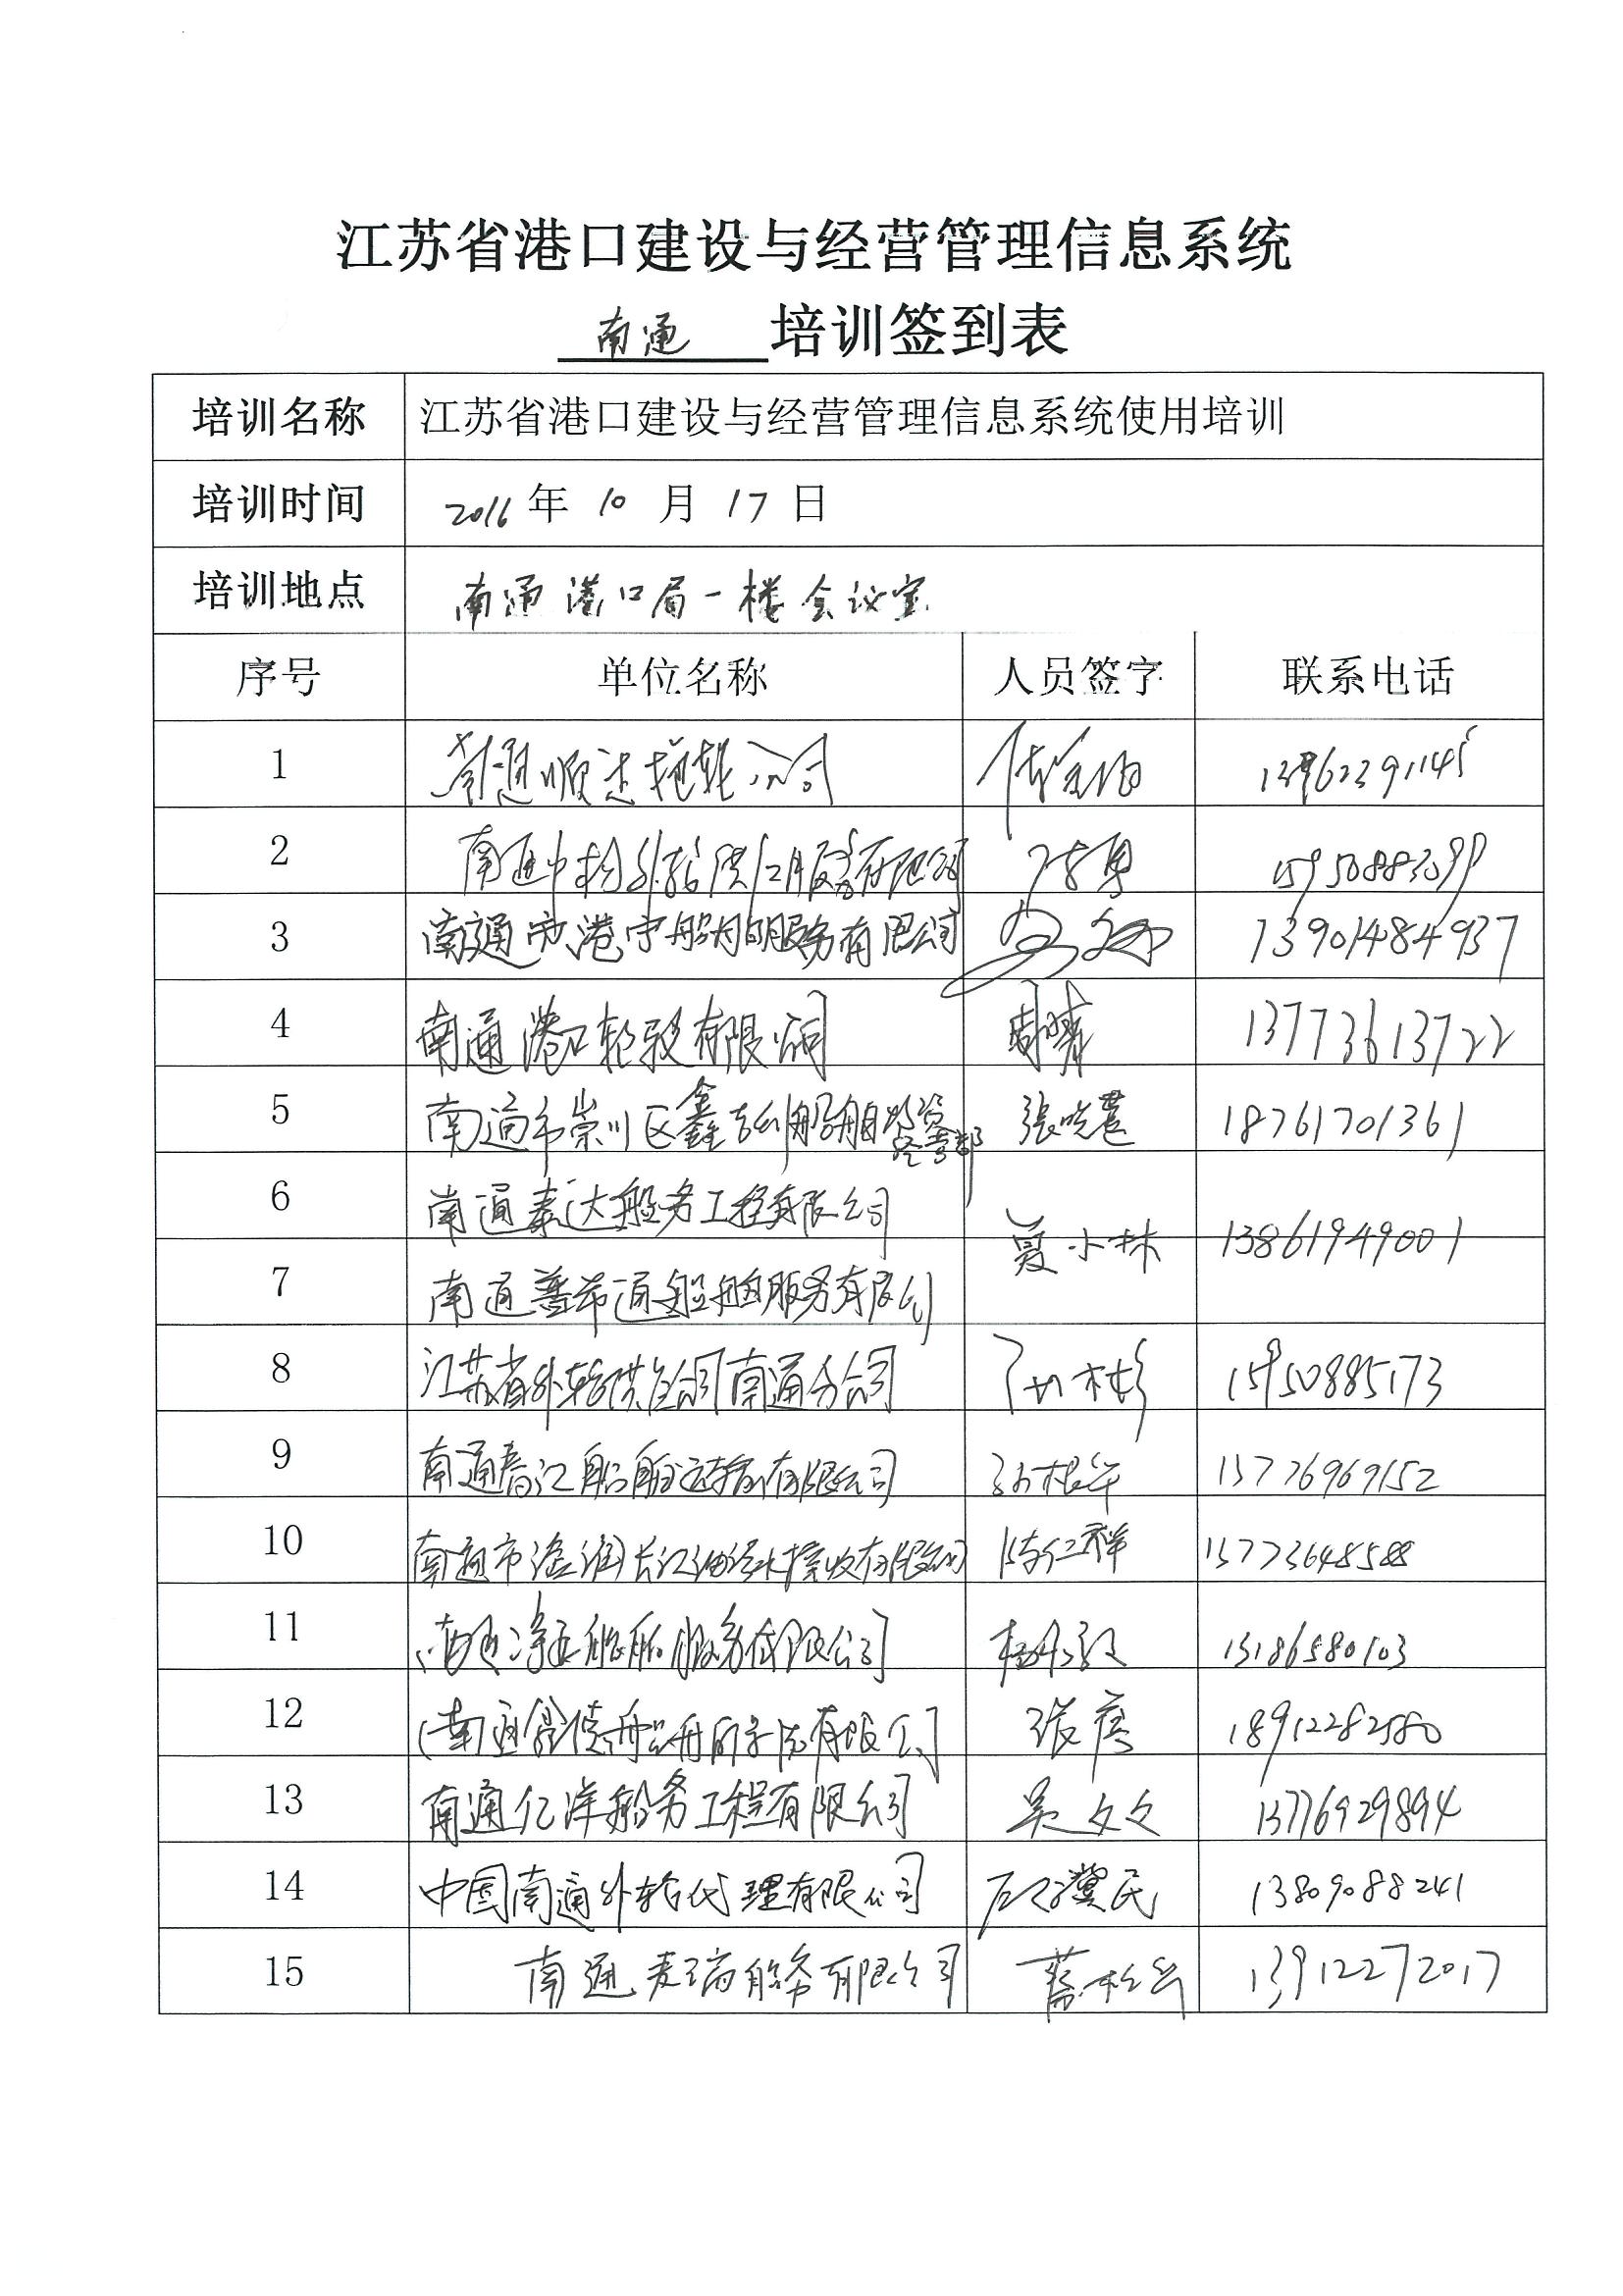 江苏省港口建设与经营管理信息系统
南通 培训签到表
培训名称 江苏省港口建设与经营管理信息系统使用培训
培训时间 2016年 10 月 17 日
培训地点 南通港口局一楼会议室
序号 单位名称 人员签字 联系电话
1 南通顺达拖轮公司
2 南通中物外轮供应服务有限公司 陈勇 15950883099
3 南通市港宁船舶服务有限公司 13901484937
4 南通港口轮驳有限公司 周晴 13773613722
5 南通市崇川区鑫吉利船舶物资经营部 張晓慧 18761701361
6 南通泰达船务工程有限公司
夏小林 13861949001
7 南通普希通船舶服务有限公司
8 江苏省外轮供应公司南通分公司 15950885173
9 南通春江船舶运输有限公司 孙根年 13776969152
10 南通市滋润长江油污水接收有限公司 陈仁祥 13773648588
11 南通净亚船舶服务有限公司 13186580103
12 南通鑫债船舶有限公司 张彦 18912282580
13 南通亿洋船务工程有限公司 吴文文 13776929894
14 中国南通外轮代理有限公司 石冀民 13809088241
15 南通麦瑞船务有限公司 蔡松兵 13912272017